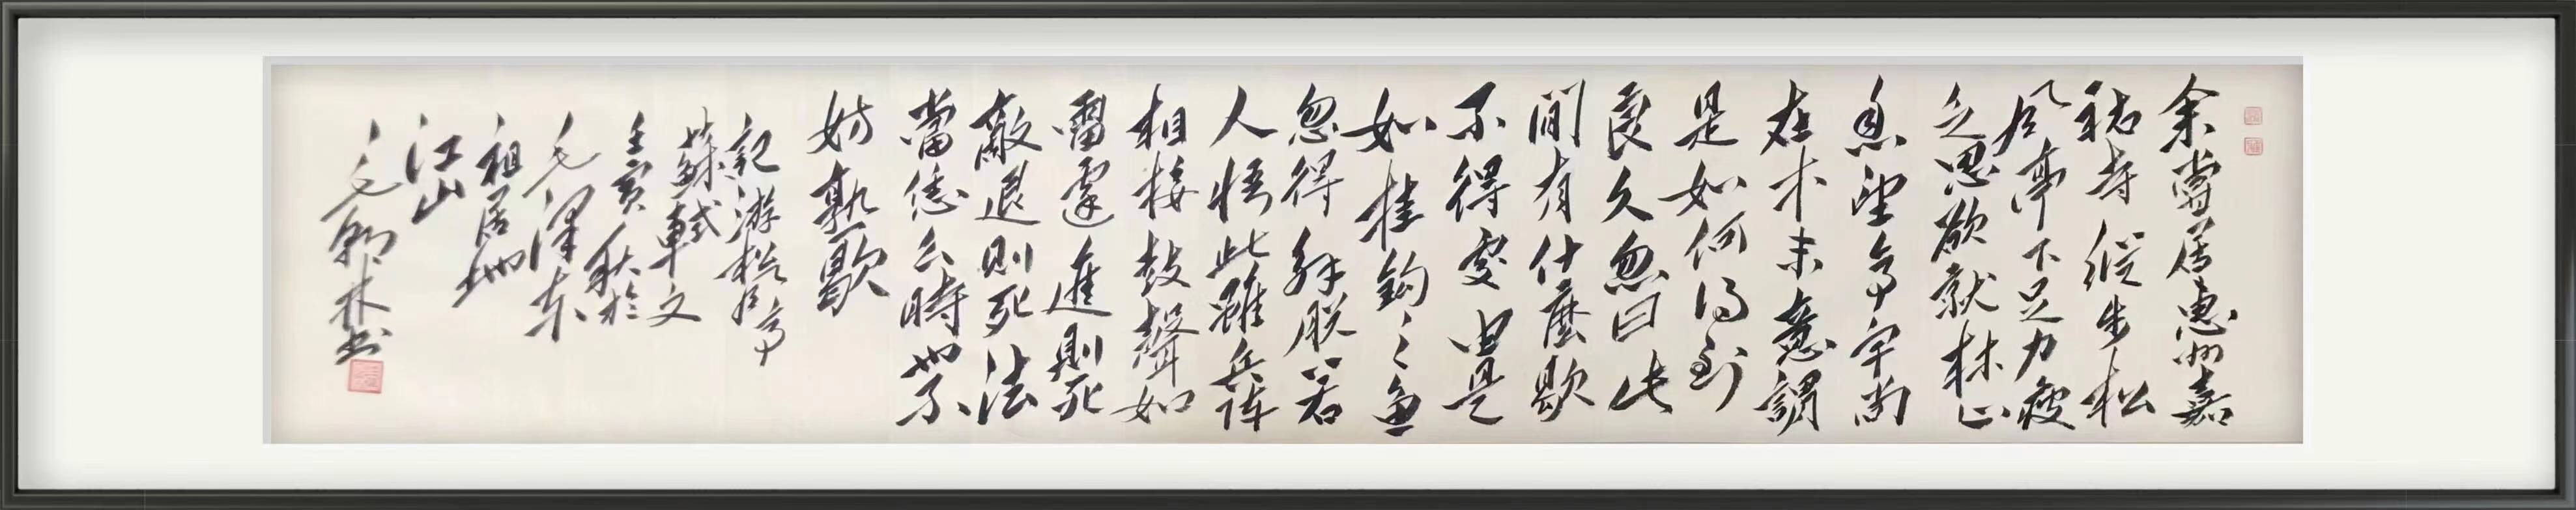 余嘗居惠州嘉
祐寺縱步松
風亭下足力疲
乏思欲就林止
息望亭宇尚
在木末意謂
是如何得到
良久忽曰此
間有什麼歇
不得處由是
如挂鈎之魚
忽得解脫若
人悟此雖兵陣
相接鼓聲如
雷霆進則死
敵退則死法
當恁么時也不
妨熟歇
記游松風亭
蘇軾文
壬寅秋於
毛澤東
祖居地
江山
毛林书